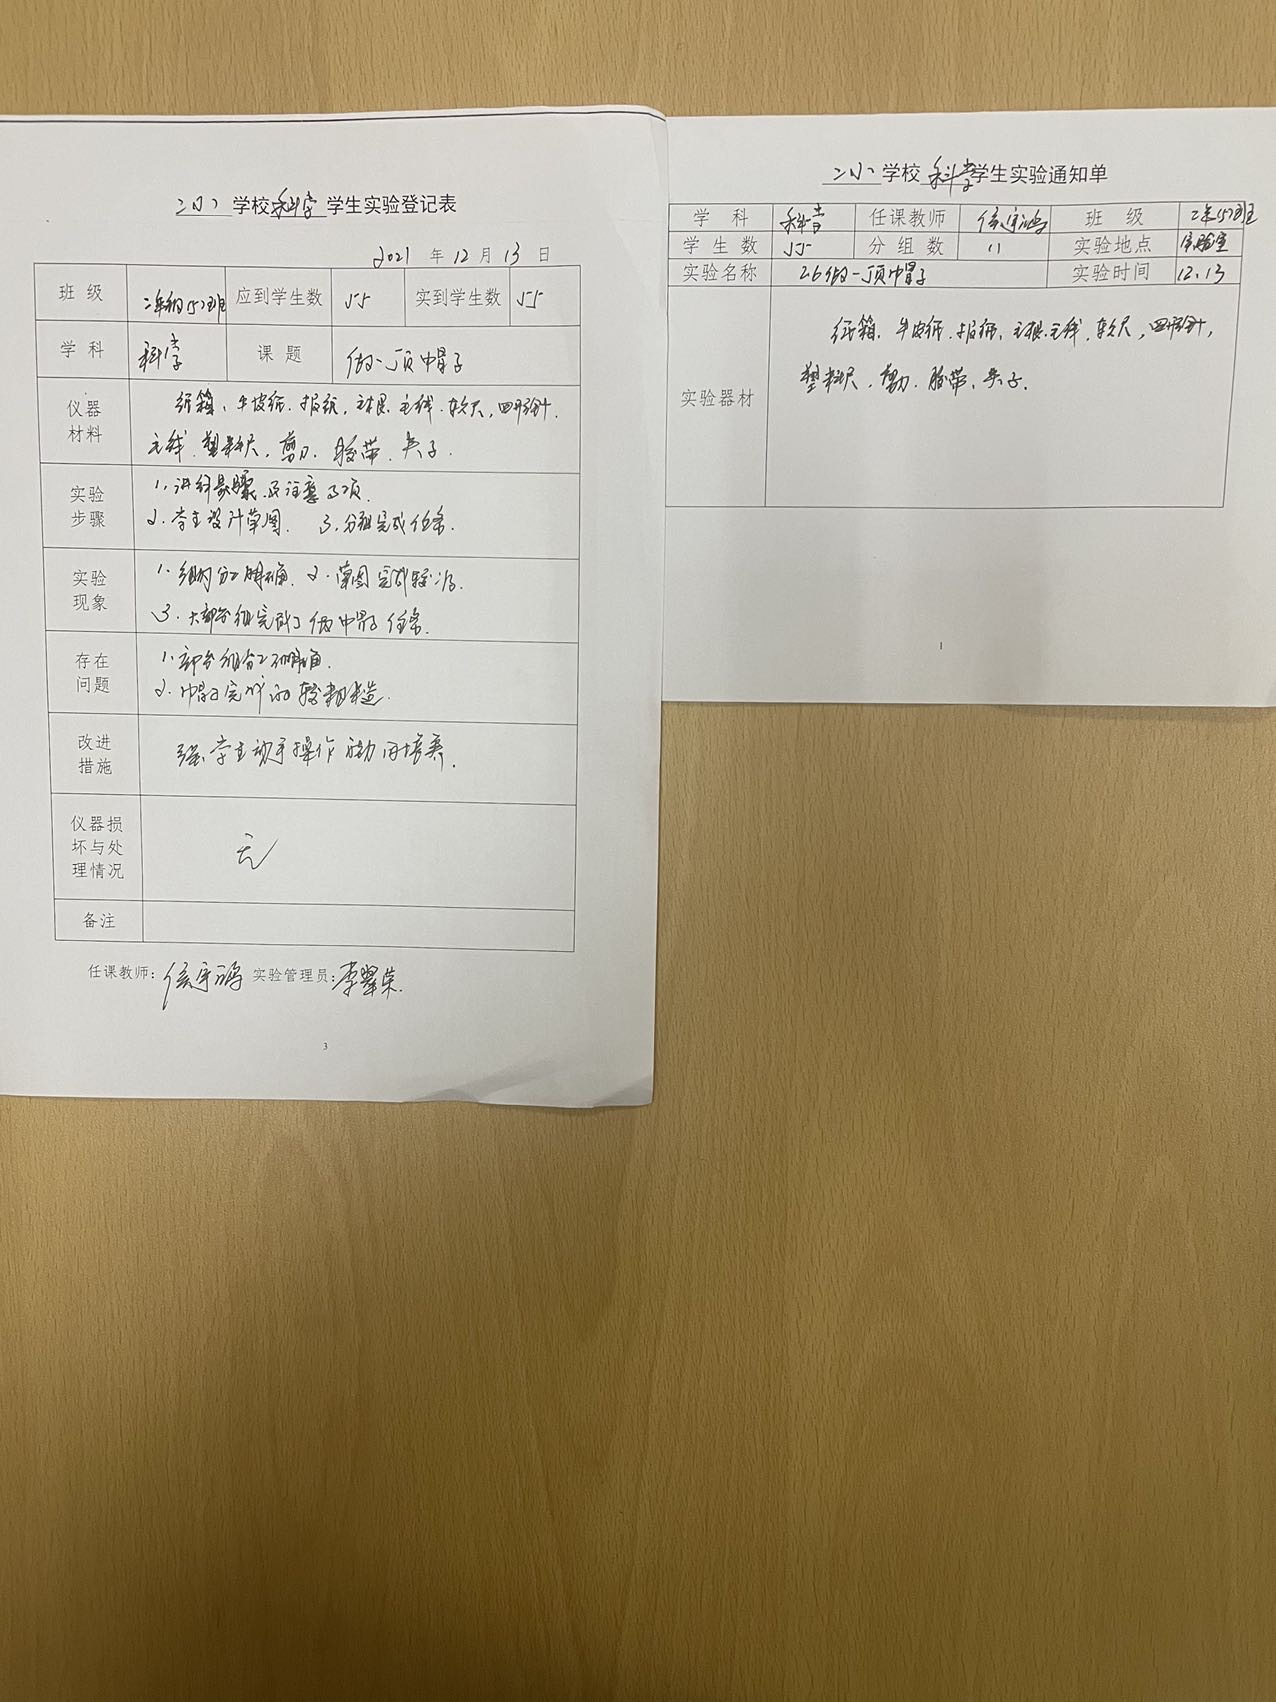 二小 学校 科学 学生实验登记表
2021 年 12 月 13 日
班 级 二年级(5)班 应到学生数 55 实到学生数 55
学 科 科学 课 题 做一顶帽子
仪器材料 纸箱、牛皮纸、报纸, 毛线、软尺,
毛线、塑料尺, 剪刀、胶带、夹子.
实验步骤 1. 讲解步骤及注意事项.
2. 学生设计草图. 3. 分组完成任务.
实验现象 1. 组内分工明确. 2. 草图完成较好.
3. 大部分组完成了做帽子任务.
存在问题 1. 部分组分工不明确.
2. 帽子完成的较粗糙.
改进措施 学生动手操作能力的培养.
仪器损坏与处理情况 无
备注
任课教师: 侯宇鸿 实验管理员: 李翠荣
3
二小 学校 科学 学生实验通知单
学 科 科学 任课教师 侯宇鸿 班 级 二年(5)班
学 生 数 55 分 组 数 11 实验地点 实验室
实验名称 2.6做一顶帽子 实验时间 12.13
实验器材 纸箱、牛皮纸、报纸、毛线、软尺,
塑料尺, 剪刀、胶带、夹子.
1